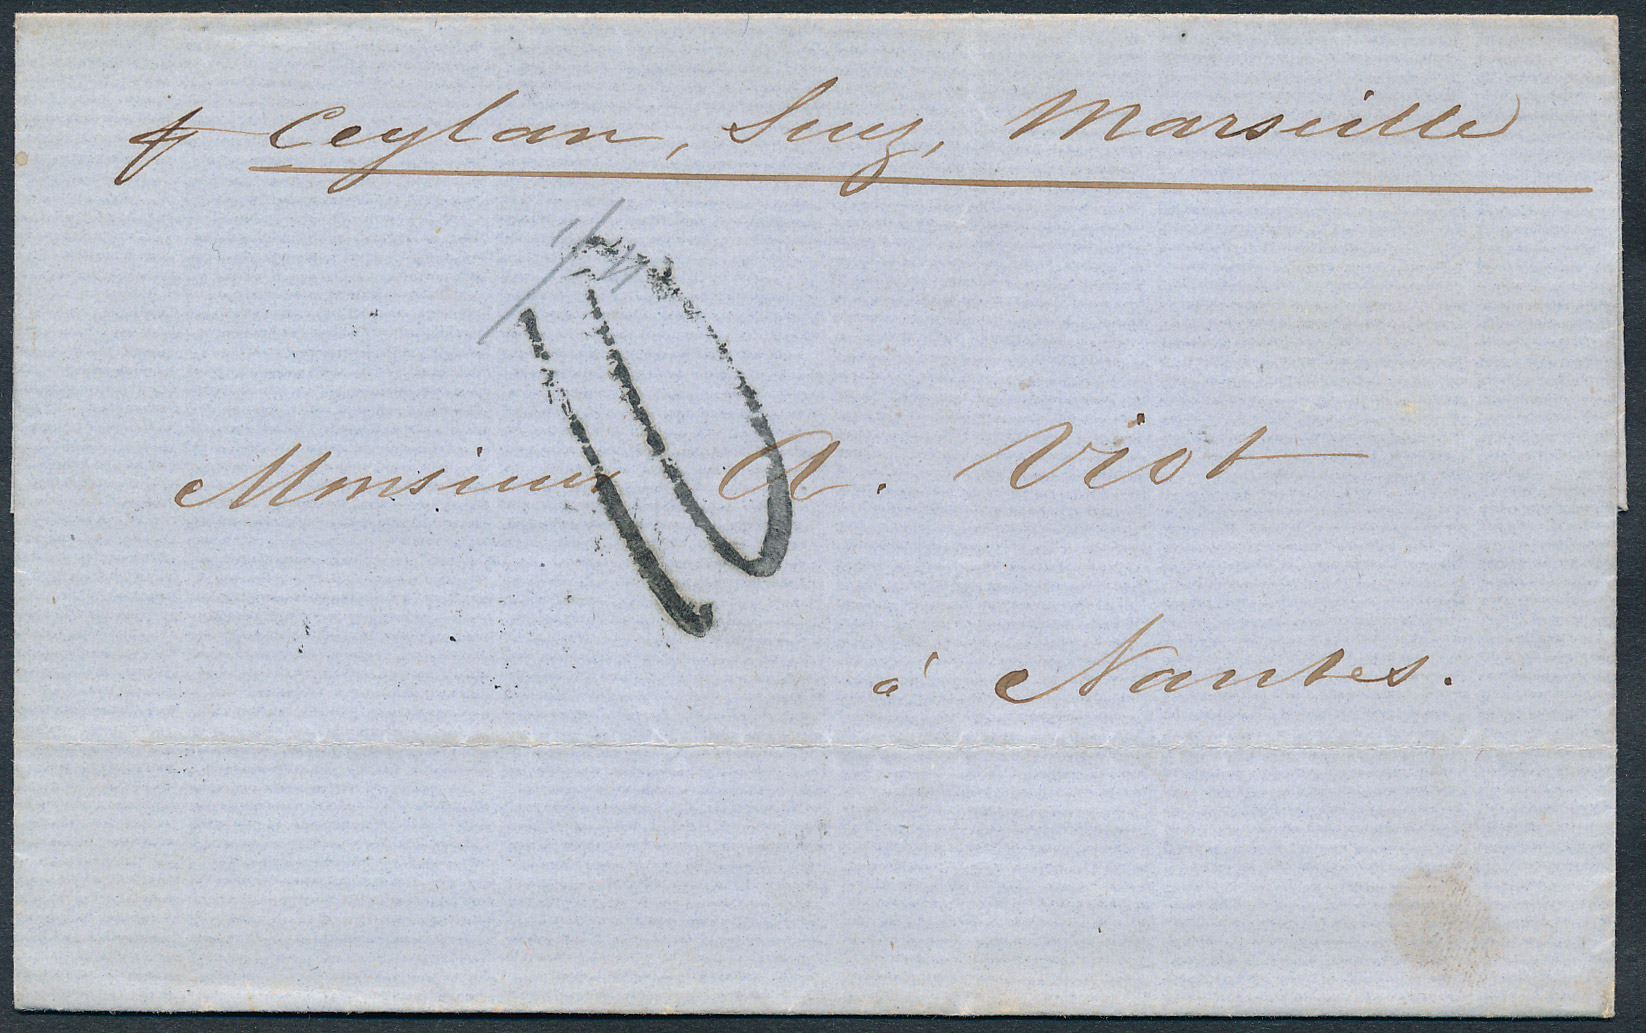 p Ceylan, Suez, Marseille
10
Monsieur A. Viot
à Nantes.